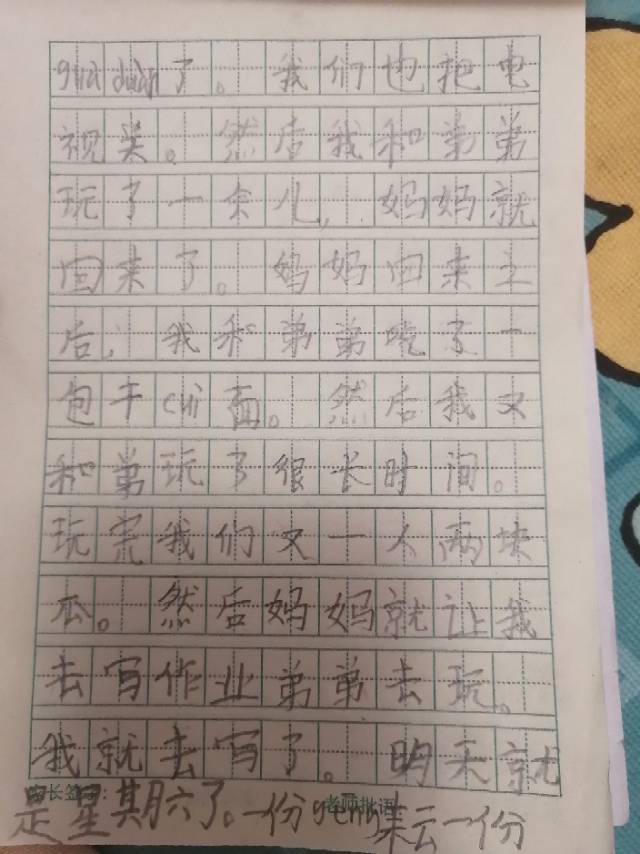 guà duàn了。我们也把电
视关。然后我和弟弟
玩了一会儿,妈妈就
回来了。妈妈回来之
后,我和弟弟吃了一
包干cuì面。然后我又
和弟玩了很长时间。
玩完我们又一人两块
瓜。然后妈妈就让我
去写作业弟弟去玩。
我就去写了。明天就
长签 老师批语
是星期六了。一份gēng耘一份